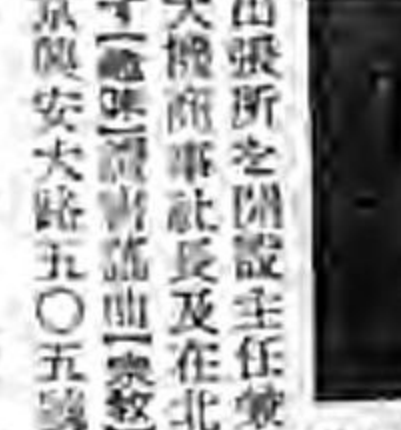 出張所を開設主任兼
大機商事社長及在北
【趣味】讀書謠曲【宗教】
京興安大路五〇五號